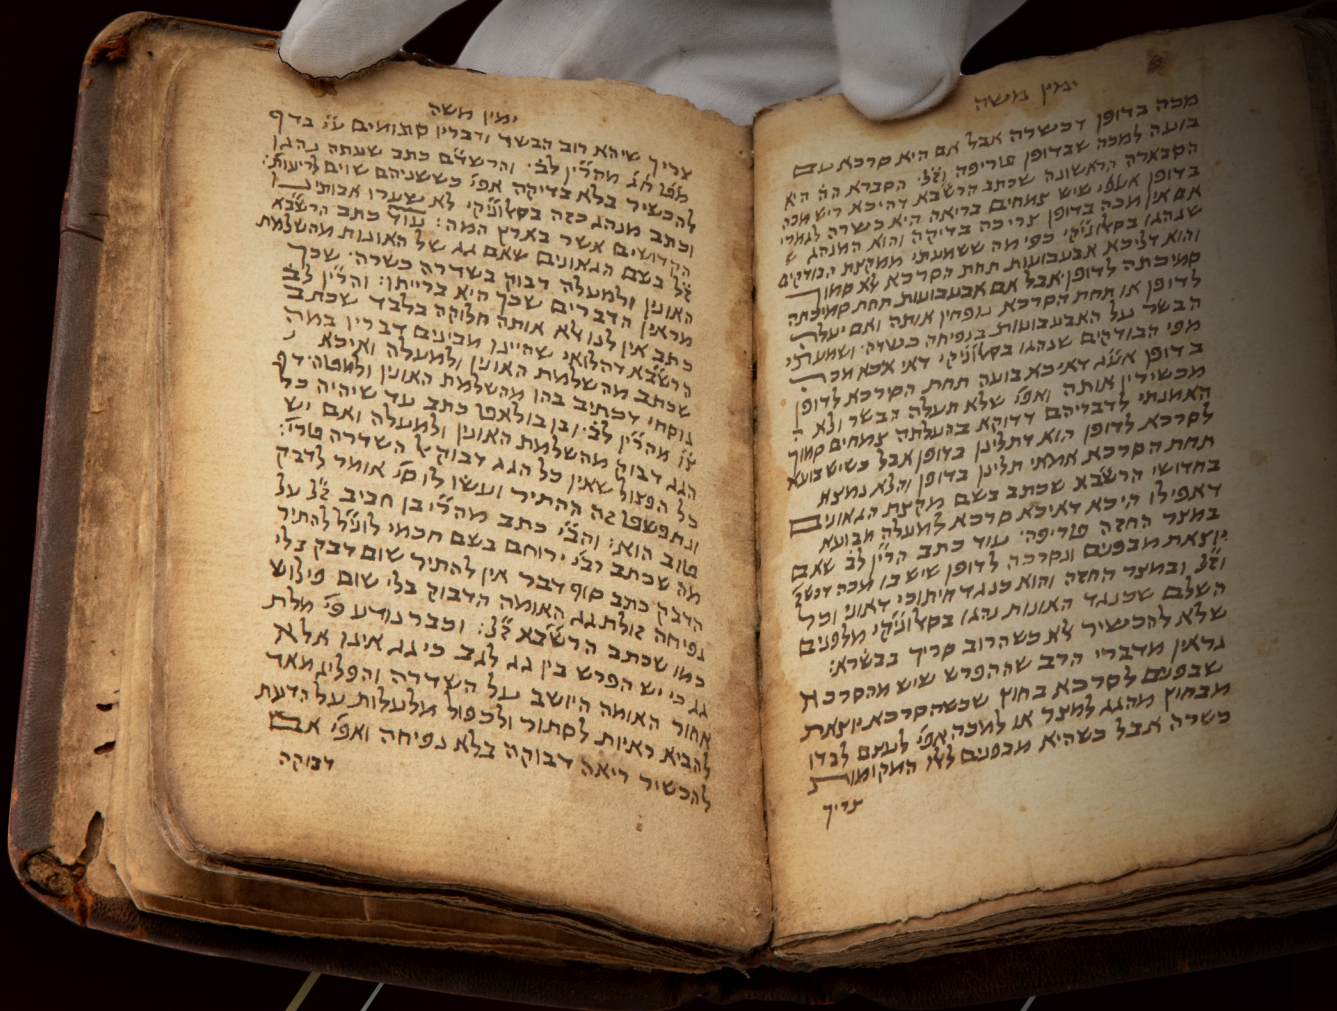 ימין משה
מכה בדופן דכשרה אבל אם היא סרכא עם
בועה למכה שבדופן טריפה וז״ל הסברא הז׳ היא
הסברה הראשונה שכתב הרשב״א דהיכא ריש מכה
בדופן אעפ״י שיש צמחים בריאה היא כשרה לגמרי
אם אין מכה בדופן צריכה בדיקה והוא המנהג ש
שנהגו בסלוניקי כפי מה ששמעתי ממקצת הבודקים
והוא דליכא אבעבועות תחת הסרכא לא סמוך
סמיכתה לדופן אבל אם אבעבועות תחת סמיכתה
לדופן או תחת הסרכא נופחין אותה ואם יעלה
הבשר על האבעבועות בנפיחה כשרה ושמעתי
מפי הבודקים שנהגו בסלוניקי דאי איכא מכה
בדופן אע״ג דאיכא בועה תחת הסרכא לדופן
מכשירין אותה ואפי׳ שלא תעלה הבשר ולא ה
האמנתי לדבריהם דדוקא בהעלתה צמחים סמוך
לסרכא לדופן הוא דתלינן בדופן אבל כשיש בועא
תחת הסרכא אמאי תלינן בדופן והנא נמצא
בחדושי הרשב״א שכתב בשם מקצת הגאונים
דאפילו היכא דאיכא סרכא למעלה מבועא
במצר החזה טריפה׃ עוד כתב הרי״ן לב שאם
יוצאת מבפנים ונסרכה לדופן שיש בו מכה דכשר׳
וז״ל ובמצר החזה והוא כנגד חיתוכי דאוני וכל
השלם שכנגד האונות נהגו בסלוניקי מלפנים
שלא להכשיר לא כשהרוב סריך בבשרא׃
נראין מדברי הרב שההפרש שיש מהסרכא
שבפנים לסרכא בחוץ שכשהסרכא יוצאת
מבחוץ מהגג למצר או למכה אפי׳ לעצם לבדו
כשרה אבל כשהיא מבפנים לאו המקומות
צריך
ימין משה
צריך שיהא רוב הבשר ודברין סתומים עי׳ בדף
מפו א״ג מהרי״ן לב׃ והרשד״ם כתב שעתה נהגו
להכשיר בלא בדיקה אפי׳ כששניהם שוים לריעות׳
וכתב מנהג כזה בסלוניקי לא שערו אבותינו
הקדושים אשר בארץ המה׃ עוד כתב הרשב״א
ז״ל בשם הגאונים שאם גג של האונות מהשלמת
האונין ולמעלה דבוק בשדרה כשרה׳ שכך
מראין הדברים שכך היא ברייתן׃ והרי״ן לב
כתב אין לנו לא אותה חלוקה בלבד שכתב
הרשב״א דהלואי שהיינו מבינים דברין במה
שכתב מהשלמת האונין ולמעלה ואיכא נ
נוסחי דכתיב בהו מהשלמת האונין ולמטה׳ דף
צו מהרי״ן לב׃ ובן בולאט כתב עד שיהיה כל
הגג דבוק מהשלמת האונין ולמעלה ואם יש
כל הפצול שאין כל הגג דבוק אל השדרה טרי׳׃
ונתפשט זה ההתיר ועשו לו סי׳ אומר לדבק
טוב הוא׃ והב״י כתב מהר״י בן חביב ז״ל על
מה שכתב רבי׳ ירוחם בשם חכמי לוני״ל להתיר
הדבק כתב סוף דבר אין להתיר שום דבק בלי
נפיחה זולת גג האומה הדבוק בלי שום פילוש
כמו שכתב הרשב״א ז״ל׃ וכבר נודע פי׳ מלת
גג כי יש הפרש בין גג לגב כי גג אינו אלא
אחור האומה היושב על השדרה והפליג מאד
להביא ראיות לסתור ולכפול מלעלות על הדעת
להכשיר ריאה דבוקה בלא נפיחה ואפי׳ אם
דבוקה